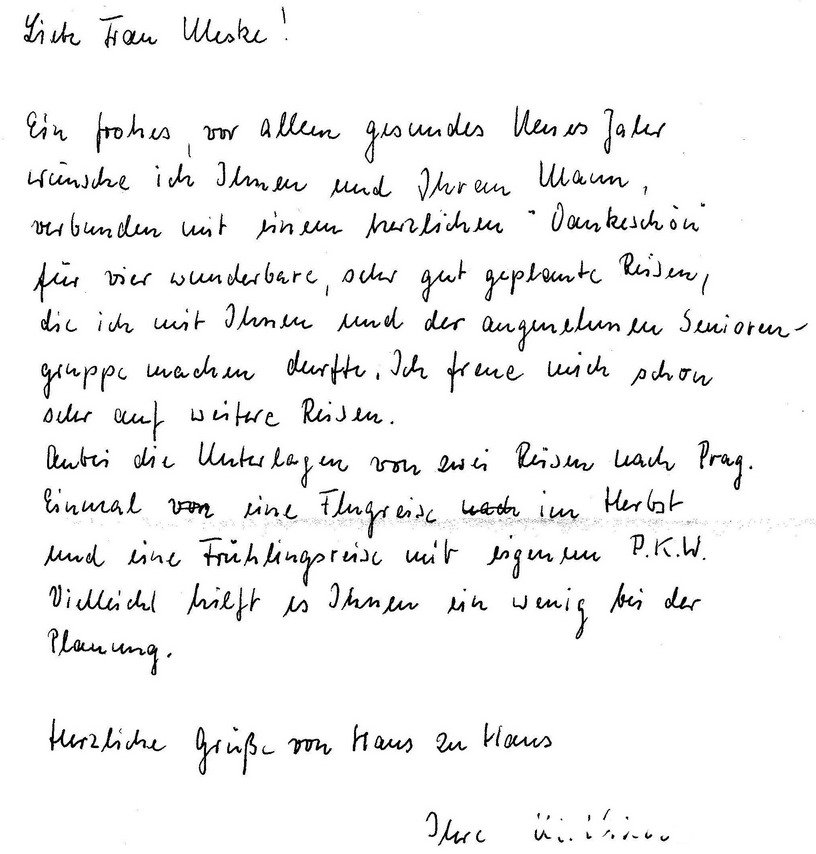 Liebe Frau Meske!
Ein frohes, vor allem gesundes Neues Jahr
wünsche ich Ihnen und Ihrem Mann,
verbunden mit einem herzlichen "Dankeschön"
für vier wunderbare, sehr gut geplante Reisen,
die ich mit Ihnen und der angenehmen Senioren-
gruppe machen durfte. Ich freue mich schon
sehr auf weitere Reisen.
Anbei die Unterlagen von zwei Reisen nach Prag.
Einmal von eine Flugreise nach im Herbst
und eine Frühlingsreise mit eigenem P.K.W.
Vielleicht hilft es Ihnen ein wenig bei der
Planung.
Herzliche Grüße von Haus zu Haus
Ihre